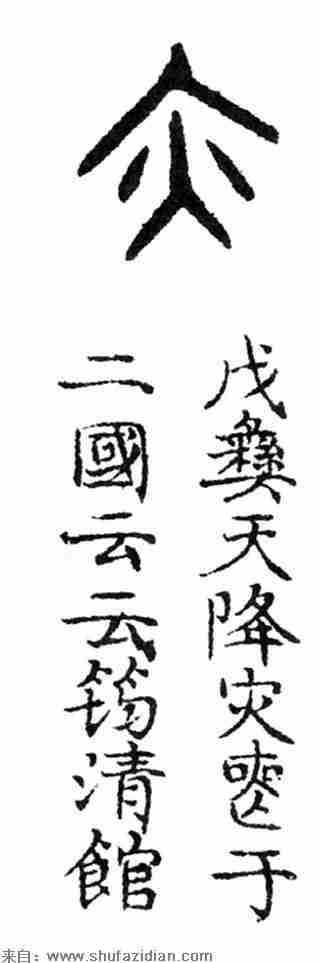 灾
戊彝天降灾喪于
二國云云筠清館
来自：www.shufazidian.com